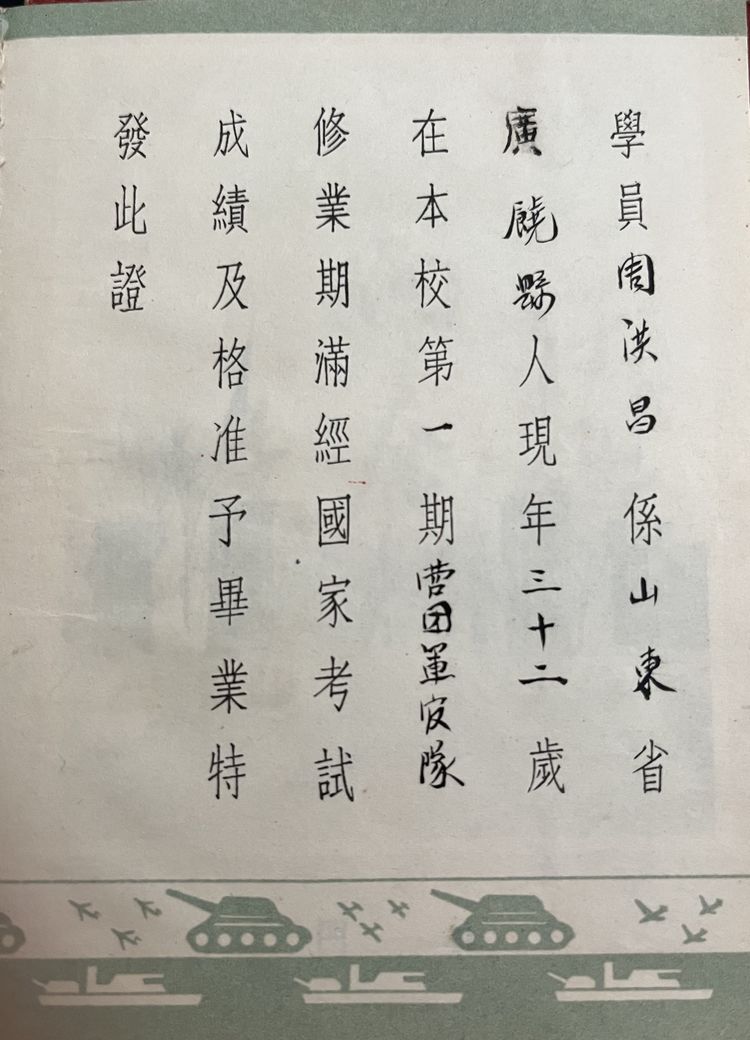 學員周洪昌係山東省
廣饒縣人現年三十二歲
在本校第一期营团軍官隊
修業期滿經國家考試
成績及格准予畢業特
發此證